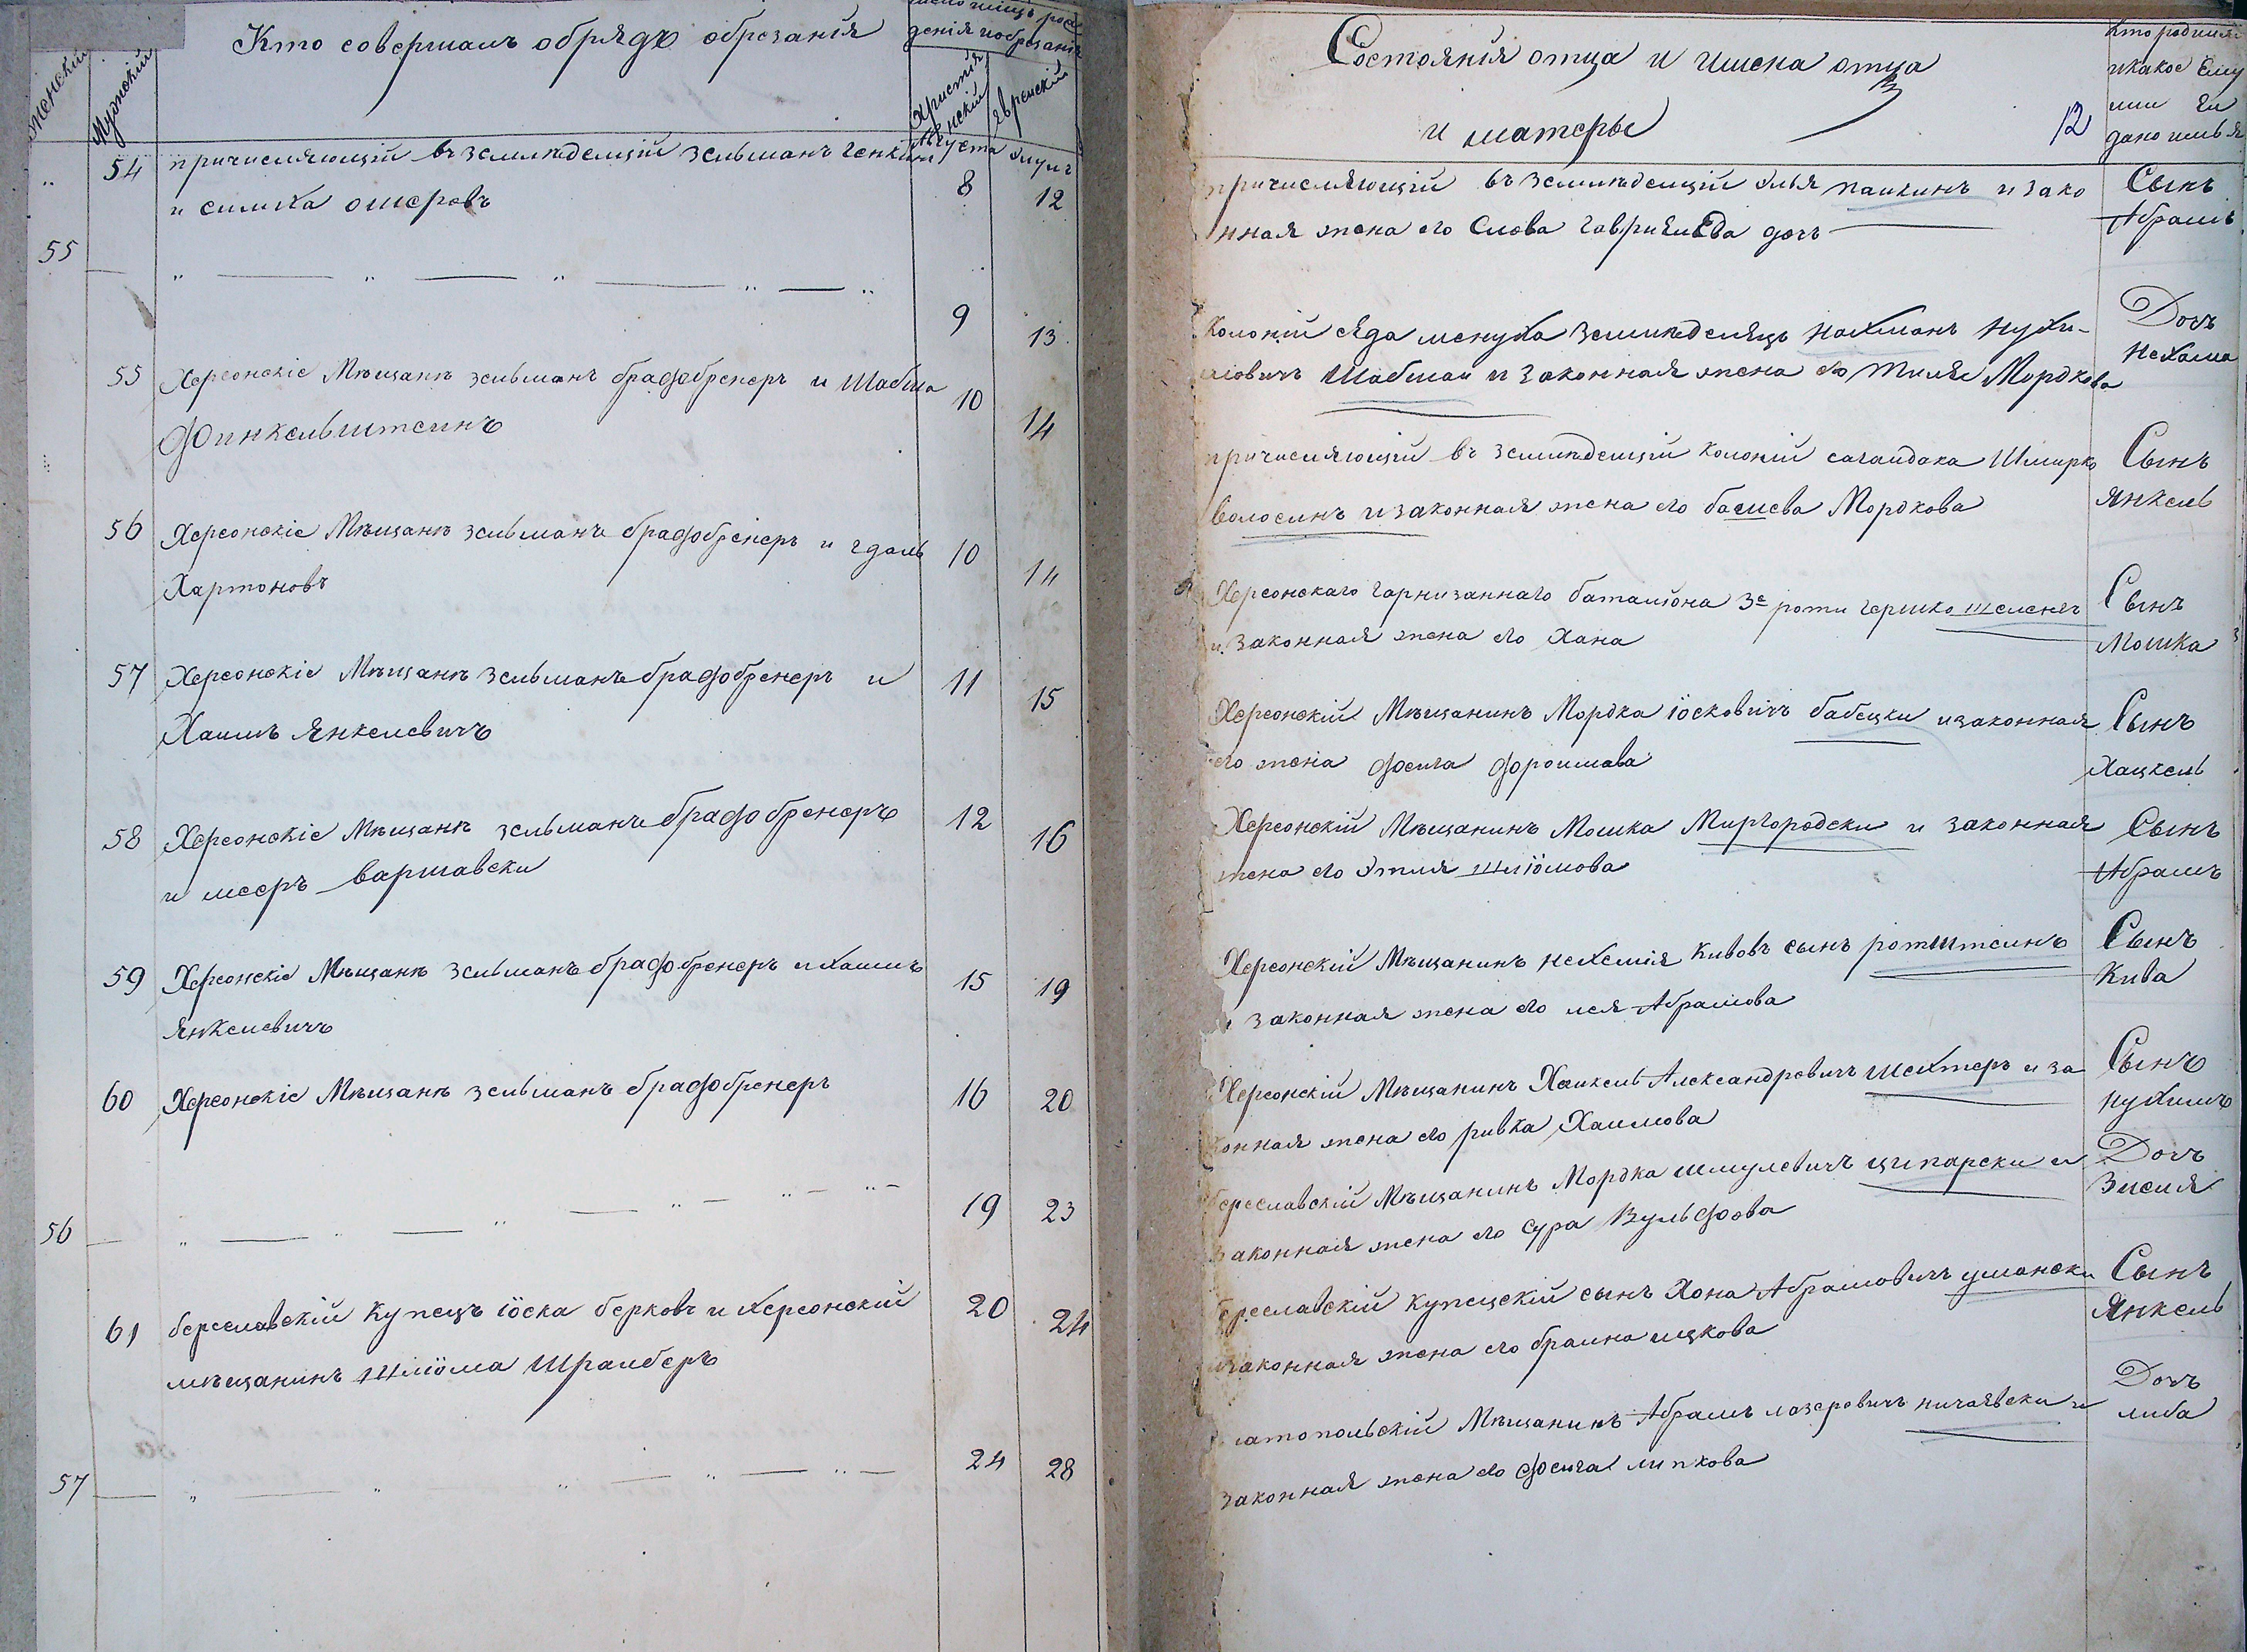 Женскій
Мужескій
Кто совершалъ обрядъ обрезанія
число и мѣсяцъ рож
денія и обрезанія
Христiя
нскій
Еврейскій
Августа
Элулъ
..
54
причисляющій въ земледелцiи Зельманъ генкинъ
8
12
и симха ошеровъ
55
9
13
55
Херсонскіе Мѣщанѣ зельманъ брафобренеръ и Шабша
10
14
Финкельштеинъ
56
Херсонскіе Мѣщанѣ зельманъ брафобренеръ и гдаль
10
14
Хартоновъ
57
Херсонскіе Мѣщанѣ зельманъ брафобренеръ и
11
15
Хаимъ Янкелевичъ
58
Херсонскіе Мѣщанѣ зельманъ брафобренеръ
12
16
и мееръ варшавски
59
Херсонскіе Мѣщанѣ зельманъ брафобренеръ и хаимъ
15
19
Янкелевичъ
60
Херсонскіе Мѣщанѣ зельманъ брафобренеръ
16
20
56
19
23
61
береславскій Купецъ іоска берковъ и Херсонскій
20
24
мѣщанинъ Шліома Шраиберъ
57
24
28
Состоянія отца и имена отца
и матеры
12
Кто родился
и какое Ему
или Еи
дано имья
причисляющій въ земледелцiи Элья паикинъ и зако
нная жена его Слова гаврилева дочь
Сынъ
Абрамъ
Колоніи сѣда менуха Земледелецъ нахманъ нухи-
мовичъ Шабман и законная жена его Тиля Мордкова
Дочь
нехама
причисляющій въ земледелцiи колоніи сагаидака Шмирко
волосинъ и законная жена его башева Мордкова
Сынъ
янкель
Херсонскаго гарнизаннаго баталіона 3е роти гершко
и законная жена его Хана
Сынъ
Мошка
Херсонскій Мѣщанинъ Мордка іосковичъ бабецки и законная
его жена феига фроимова
Сынъ
Хацкель
Херсонскій Мѣщанинъ Мошка Миргородски и законная
жена его Этля шліомова
Сынъ
Абрамъ
Херсонскій Мѣщанинъ нехемія Кивовъ сынъ ротштеинъ
и законная жена его лея Абрамова
Сынъ
Кива
Херсонскій Мѣщанинъ Хаикель Александровичъ шехтеръ и за
конная жена его ривка Хаимова
Сынъ
нухимъ
береславскій Мѣщанинъ Мордка шмулевичъ ципарски и
законная жена его Сура Вульфова
Дочъ
Зисля
береславскій купецкій сынъ Хона Абрамовичъ умански
и законная жена его браина ицкова
Сынъ
Янкель
златопольскій Мѣщанинъ Абрамъ лазеровичъ ничаявски и
законная жена его феига липкова
Дочъ
либа